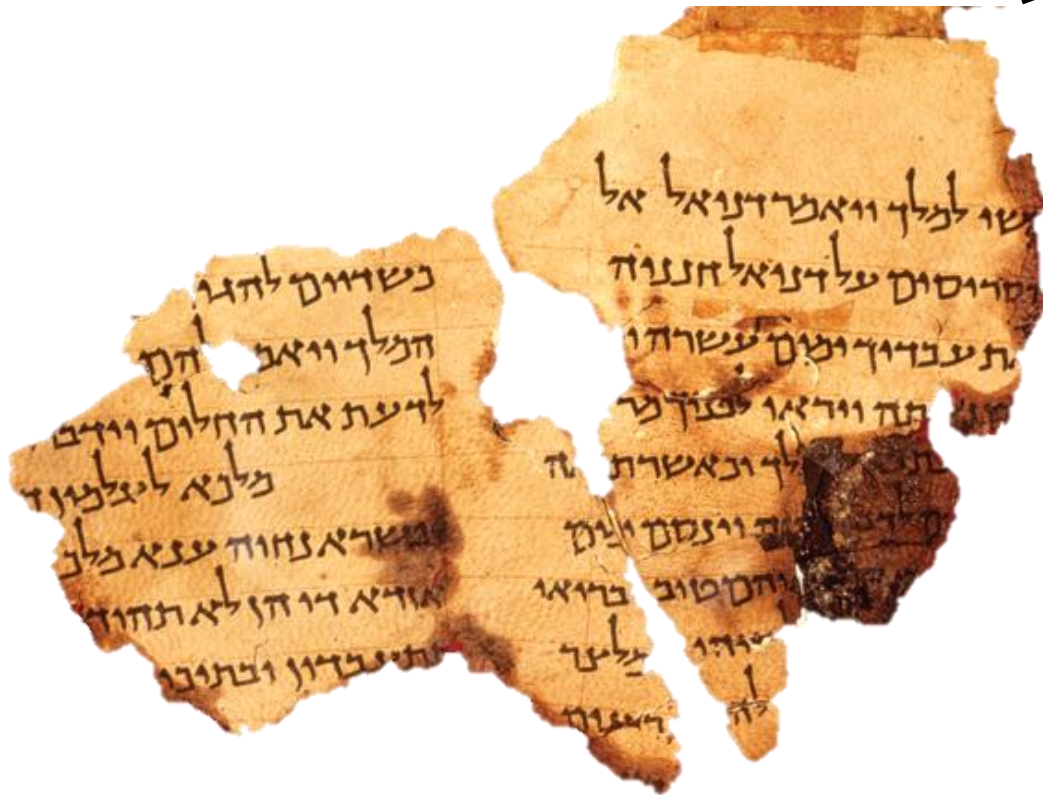 אשי למלך ויאמר דניאל אל
סריסים על דניאל חנניה
את עבדיך ימים עשרה וי
תה ויראו לפניך מר
לך וכאשר ת ה
וינסם ימים
יהם טוב בריאי
ויהי מלצר
לה
כשדיים להגי
המלך ויאמ להם
לדעת את החלום וידב
מלכא לעלמין
ופשרא נחוה ענא מלכ
אזדא די הן לא תהוד
תתעבדון ובתיכו